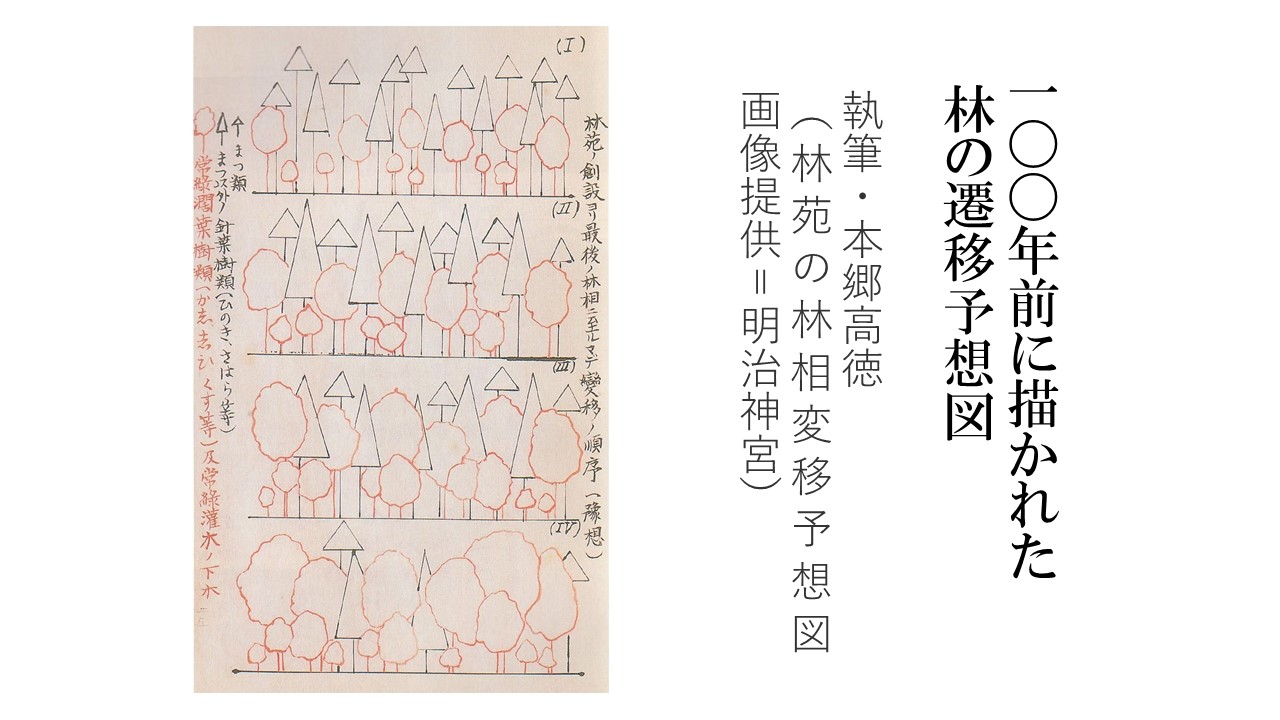 一〇〇年前に描かれた
林の遷移予想図
執筆・本郷高徳
(林苑の林相変移予想図
画像提供=明治神宮)
林苑ノ創設ヨリ最後ノ林相ニ至ルマデ變移ノ順序(豫想)
(I)
(II)
(III)
(IV)
まつ類
まつ以外ノ針葉樹類(ひのき、さはら等)
常綠濶葉樹類(かし、しひ、くす等)及常綠灌木ノ下木